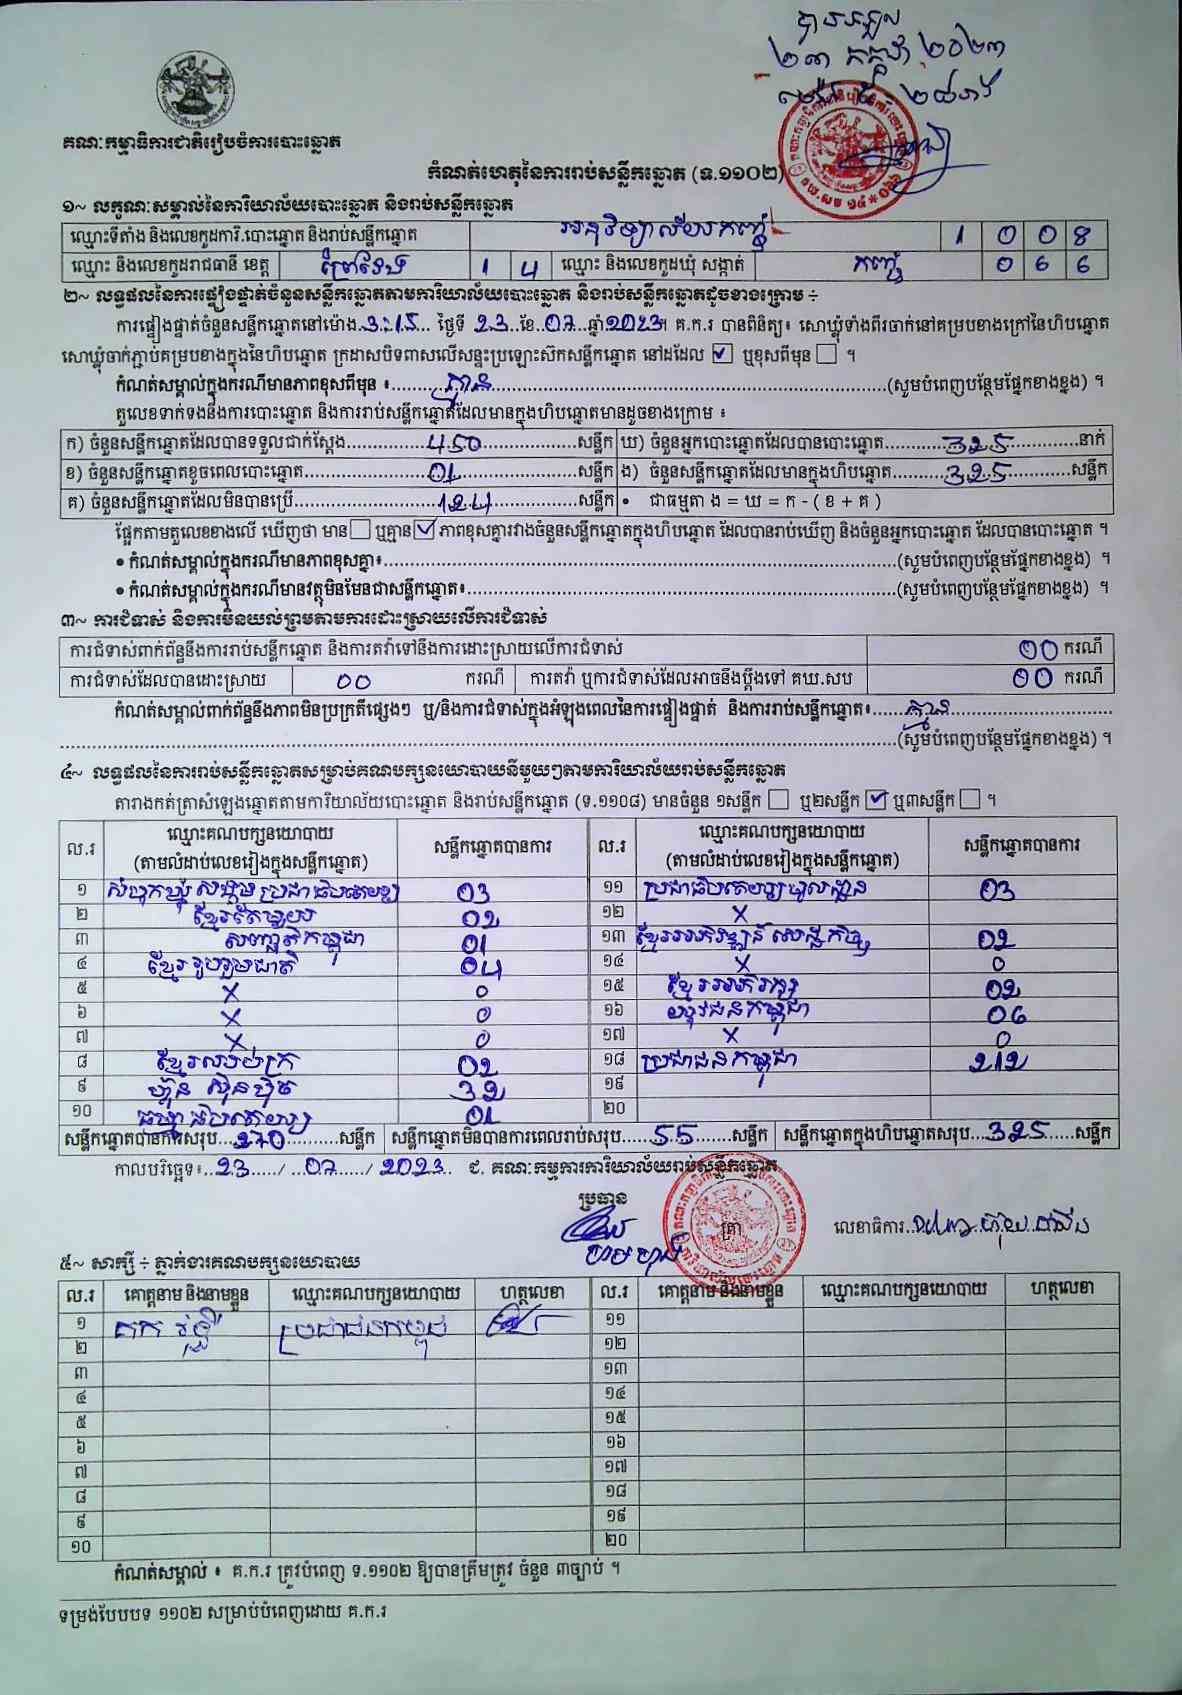 បានទទួល
២៣ កក្កដា ២០២៣
គណៈកម្មាធិការជាតិរៀបចំការបោះឆ្នោត
កំណត់ហេតុនៃការរាប់សន្លឹកឆ្នោត (ទ.១១០២)
១~ លក្ខណៈសម្គាល់នៃការិយាល័យបោះឆ្នោត និងរាប់សន្លឹកឆ្នោត
ឈ្មោះទីតាំង និងលេខកូដការិ.បោះឆ្នោត និងរាប់សន្លឹកឆ្នោត អនុវិទ្យាល័យកញ្ជ្រំ 1 0 0 8
ឈ្មោះ និងលេខកូដរាជធានី ខេត្ត ព្រៃវែង 1 4 ឈ្មោះ និងលេខកូដឃុំ សង្កាត់ កញ្ជ្រំ 0 6 6
២~ លទ្ធផលនៃការផ្ទៀងផ្ទាត់ចំនួនសន្លឹកឆ្នោតតាមការិយាល័យបោះឆ្នោត និងរាប់សន្លឹកឆ្នោតដូចខាងក្រោម ÷
ការផ្ទៀងផ្ទាត់ចំនួនសន្លឹកឆ្នោតនៅម៉ោង 3:15 ថ្ងៃទី 23 ខែ 07 ឆ្នាំ 2023។ គ.ក.រ បានពិនិត្យ៖ សោឃ្លុំទាំងពីរចាក់នៅគម្របខាងក្រៅនៃហិបឆ្នោត
សោឃ្លុំចាក់ភ្ជាប់គម្របខាងក្នុងនៃហិបឆ្នោត ក្រដាសបិទពាសលើសន្ទះប្រឡោះស៊កសន្លឹកឆ្នោត នៅដដែល ☑ ឬខុសពីមុន ☐ ។
កំណត់សម្គាល់ក្នុងករណីមានភាពខុសពីមុន ៖ គ្មាន (សូមបំពេញបន្ថែមផ្នែកខាងខ្នង) ។
តួលេខទាក់ទងនឹងការបោះឆ្នោត និងការរាប់សន្លឹកឆ្នោតដែលមានក្នុងហិបឆ្នោតមានដូចខាងក្រោម ៖
ក) ចំនួនសន្លឹកឆ្នោតដែលបានទទួលជាក់ស្តែង 450 សន្លឹក ឃ) ចំនួនអ្នកបោះឆ្នោតដែលបានបោះឆ្នោត 325 នាក់
ខ) ចំនួនសន្លឹកឆ្នោតខូចពេលបោះឆ្នោត 01 សន្លឹក ង) ចំនួនសន្លឹកឆ្នោតដែលមានក្នុងហិបឆ្នោត 325 សន្លឹក
គ) ចំនួនសន្លឹកឆ្នោតដែលមិនបានប្រើ 124 សន្លឹក • ជាធម្មតា ង = ឃ = ក - ( ខ + គ )
ផ្អែកតាមតួលេខខាងលើ ឃើញថា មាន ☐ ឬគ្មាន ☑ ភាពខុសគ្នារវាងចំនួនសន្លឹកឆ្នោតក្នុងហិបឆ្នោត ដែលបានរាប់ឃើញ និងចំនួនអ្នកបោះឆ្នោត ដែលបានបោះឆ្នោត ។
• កំណត់សម្គាល់ក្នុងករណីមានភាពខុសគ្នា៖ (សូមបំពេញបន្ថែមផ្នែកខាងខ្នង) ។
• កំណត់សម្គាល់ក្នុងករណីមានវត្ថុមិនមែនជាសន្លឹកឆ្នោត៖ (សូមបំពេញបន្ថែមផ្នែកខាងខ្នង) ។
៣~ ការជំទាស់ និងការមិនយល់ព្រមតាមការដោះស្រាយលើការជំទាស់
ការជំទាស់ពាក់ព័ន្ធនឹងការរាប់សន្លឹកឆ្នោត និងការតវ៉ាទៅនឹងការដោះស្រាយលើការជំទាស់ 00 ករណី
ការជំទាស់ដែលបានដោះស្រាយ 00 ករណី ការតវ៉ា ឬការជំទាស់ដែលអាចនឹងប្តឹងទៅ គឃ.សប 00 ករណី
កំណត់សម្គាល់ពាក់ព័ន្ធនឹងភាពមិនប្រក្រតីផ្សេងៗ ឬ/និងការជំទាស់ក្នុងអំឡុងពេលនៃការផ្ទៀងផ្ទាត់ និងការរាប់សន្លឹកឆ្នោត៖ គ្មាន
(សូមបំពេញបន្ថែមផ្នែកខាងខ្នង) ។
៤~ លទ្ធផលនៃការរាប់សន្លឹកឆ្នោតសម្រាប់គណបក្សនយោបាយនីមួយៗតាមការិយាល័យរាប់សន្លឹកឆ្នោត
តារាងកត់ត្រាសំឡេងឆ្នោតតាមការិយាល័យបោះឆ្នោត និងរាប់សន្លឹកឆ្នោត (ទ.១១០៨) មានចំនួន ១សន្លឹក ☐ ឬ២សន្លឹក ☑ ឬ៣សន្លឹក ☐ ។
ល.រ ឈ្មោះគណបក្សនយោបាយ (តាមលំដាប់លេខរៀងក្នុងសន្លឹកឆ្នោត) សន្លឹកឆ្នោតបានការ ល.រ ឈ្មោះគណបក្សនយោបាយ (តាមលំដាប់លេខរៀងក្នុងសន្លឹកឆ្នោត) សន្លឹកឆ្នោតបានការ
១ សំបុកឃ្មុំសង្គមប្រជាធិបតេយ្យ 03 ១១ ប្រជាធិបតេយ្យមូលដ្ឋាន 03
២ ខ្មែរតែមួយ 02 ១២ X
៣ សញ្ជាតិកម្ពុជា 01 ១៣ ខ្មែរអភិវឌ្ឍន៍សេដ្ឋកិច្ច 02
៤ ខ្មែររួបរួមជាតិ 04 ១៤ X 0
៥ X 0 ១៥ ខ្មែរអភិរក្ស 02
៦ X 0 ១៦ យុវជនកម្ពុជា 06
៧ X 0 ១៧ X 0
៨ ខ្មែរឈប់ក្រ 02 ១៨ ប្រជាជនកម្ពុជា 212
៩ ហ៊្វុនស៊ិនប៉ិច 32 ១៩
១០ ធម្មាធិបតេយ្យ 01 ២០
សន្លឹកឆ្នោតបានការសរុប 270 សន្លឹក សន្លឹកឆ្នោតមិនបានការពេលរាប់សរុប 55 សន្លឹក សន្លឹកឆ្នោតក្នុងហិបឆ្នោតសរុប 325 សន្លឹក
កាលបរិច្ឆេទ៖ 23 / 07 / 2023 ជ. គណៈកម្មការការិយាល័យរាប់សន្លឹកឆ្នោត
ប្រធាន
ត្រា
លេខាធិការ
៥~ សាក្សី ÷ ភ្នាក់ងារគណបក្សនយោបាយ
ល.រ គោត្តនាម និងនាមខ្លួន ឈ្មោះគណបក្សនយោបាយ ហត្ថលេខា ល.រ គោត្តនាម និងនាមខ្លួន ឈ្មោះគណបក្សនយោបាយ ហត្ថលេខា
១ ប្រជាជនកម្ពុជា ១១
២ ១២
៣ ១៣
៤ ១៤
៥ ១៥
៦ ១៦
៧ ១៧
៨ ១៨
៩ ១៩
១០ ២០
កំណត់សម្គាល់ ៖ គ.ក.រ ត្រូវបំពេញ ទ.១១០២ ឱ្យបានត្រឹមត្រូវ ចំនួន ៣ច្បាប់ ។
ទម្រង់បែបបទ ១១០២ សម្រាប់បំពេញដោយ គ.ក.រ